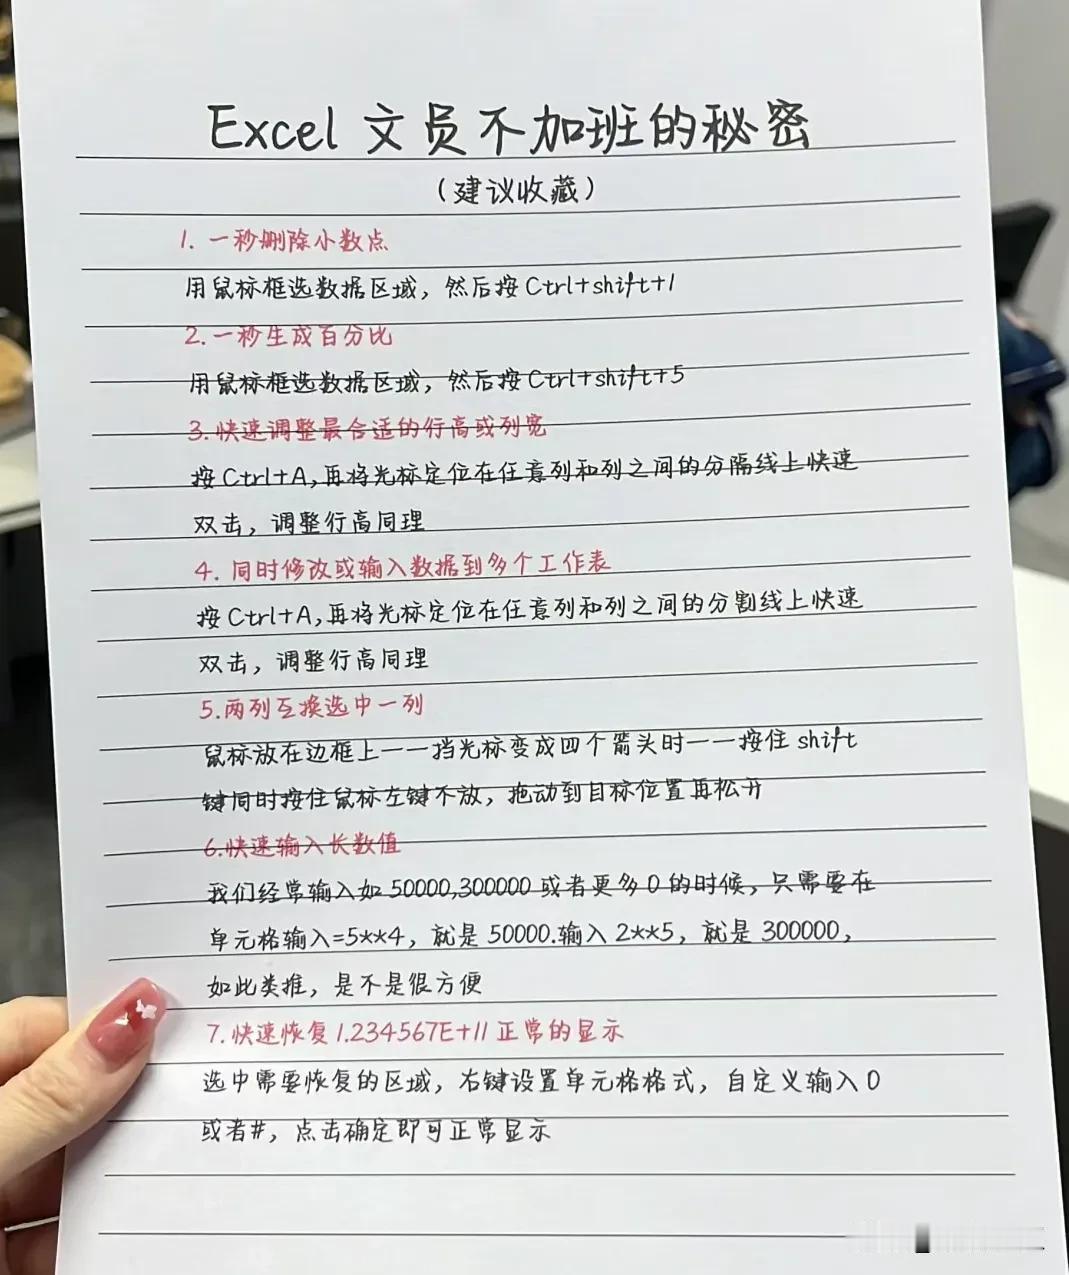 Excel 文员不加班的秘密
（建议收藏）
1. 一秒删除小数点
用鼠标框选数据区域，然后按Ctrl+shift+1
2.一秒生成百分比
用鼠标框选数据区域，然后按Ctrl+shift+5
3.快速调整最合适的行高或列宽
按Ctrl+A,再将光标定位在任意列和列之间的分隔线上快速
双击，调整行高同理
4. 同时修改或输入数据到多个工作表
按Ctrl+A,再将光标定位在任意列和列之间的分割线上快速
双击，调整行高同理
5.两列互换选中一列
鼠标放在边框上一一挡光标变成四个箭头时一一按住 shift
键同时按住鼠标左键不放，拖动到目标位置再松开
6.快速输入长数值
我们经常输入如 50000,300000 或者更多0的时候，只需要在
单元格输入=5**4，就是 50000.输入 2**5，就是 300000，
如此类推，是不是很方便
7.快速恢复1.234567E+11正常的显示
选中需要恢复的区域，右键设置单元格格式，自定义输入0
或者#，点击确定即可正常显示